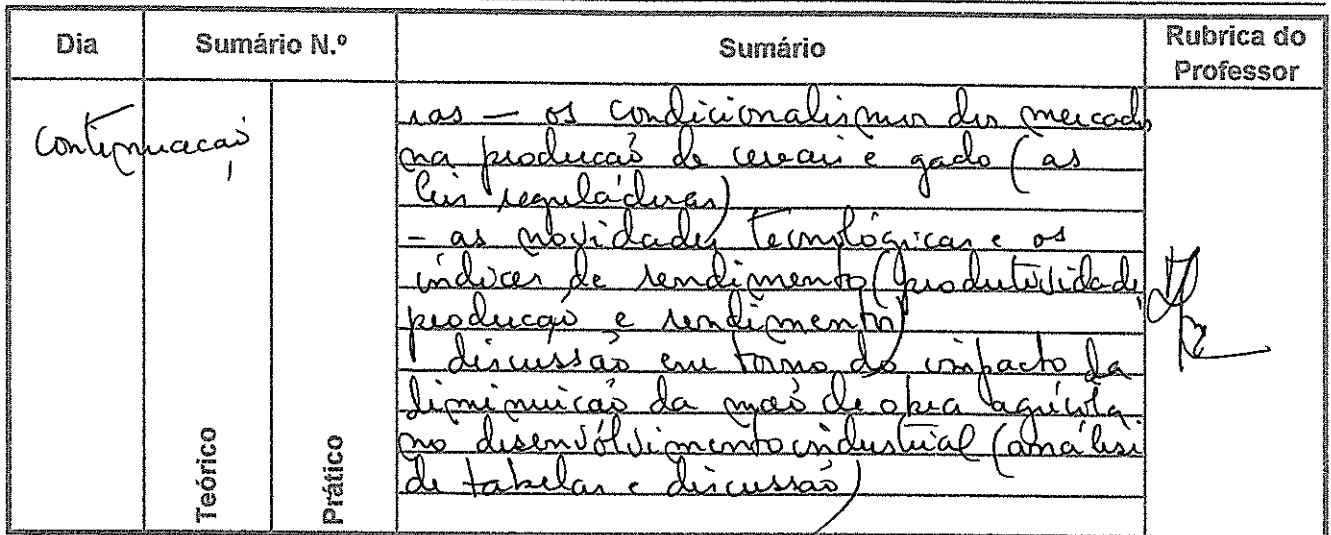 Dia Sumário N.º Sumário Rubrica do Professor
Continuação
Teórico
Prático
ias — os condicionalismos dos mercados
na produção de cereais e gado (as
leis reguladoras)
- as novidades tecnológicas e os
índices de rendimento (produtividade
produção e rendimento)
discussão em torno do impacto da
diminuição da mão de obra agrícola
no desenvolvimento industrial (análise
de tabelas e discussão)